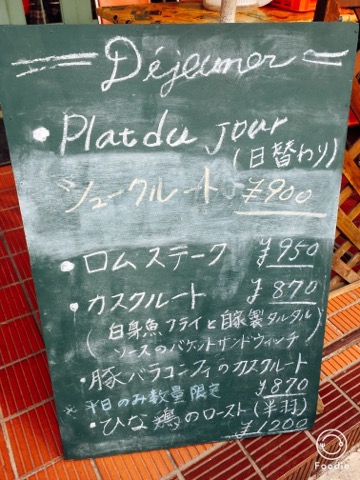 Déjeuner
• Plat du jour
(日替わり)
シュークルート ¥900
• ロムステーク ¥950
• カスクルート ¥870
(白身魚フライと自家製タルタル
ソースのバケットサンドウィッチ)
• 豚バラコンフィのカスクルート
※平日のみ数量限定 ¥870
• ひな鶏のロースト(半羽)
¥1200
Foodie